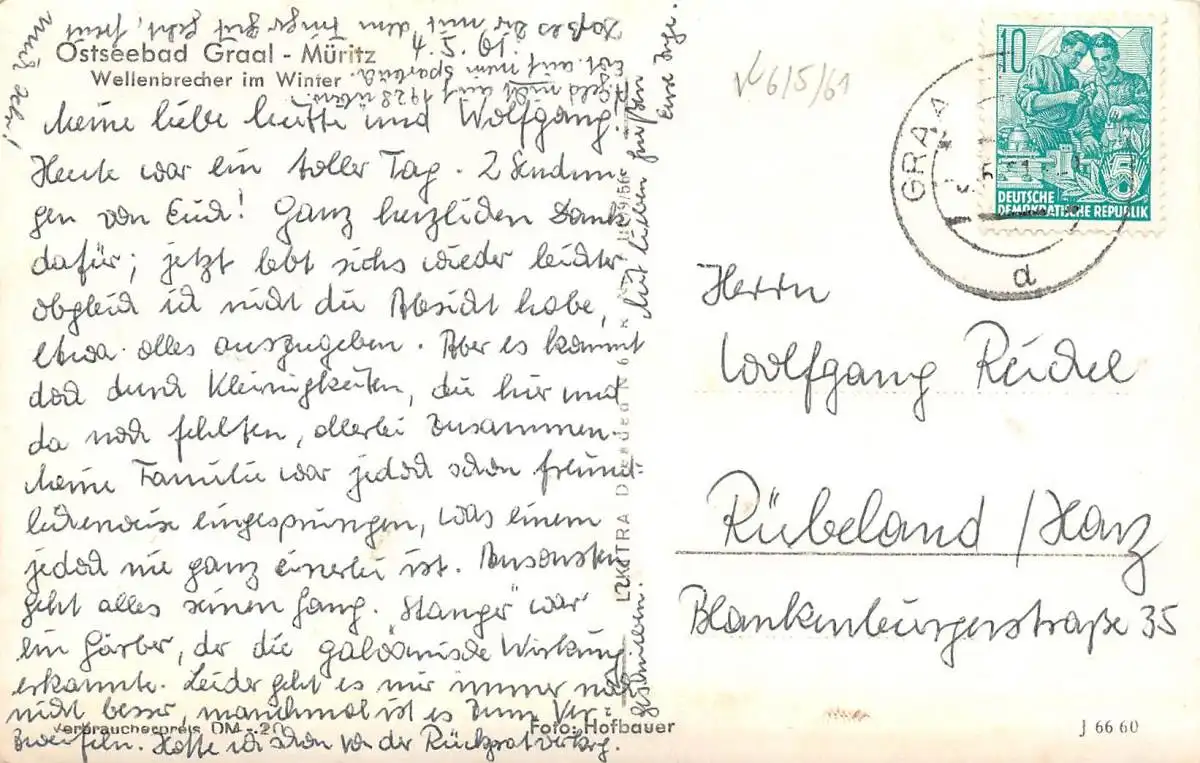 Ostseebad Graal - Müritz
Wellenbrecher im Winter
4.5.61.
Meine liebe Mutti und Wolfgang!
Heute war ein toller Tag. 2 Sendun-
gen von Euch! Ganz herzlichen Dank
dafür; jetzt lebt sichs wieder leichter
obgleich ich nicht die Absicht habe,
etwa alles auszugeben. Aber es kommt
doch durch Kleinigkeiten, die hier und
da noch fehlten, allerlei zusammen.
Meine Familie war jedoch schon freund-
licherweise eingesprungen, was einem
jedoch nie ganz einerlei ist. Ansonsten
geht alles seinen Gang. "Stanger" war
ein Gärber, der die galvanische Wirkung
erkannte. Leider geht es mir immer noch
nicht besser, manchmal ist es zum Ver-
zweifeln. Hoffe ich schon von der
Mit lieben Grüßen
Eure Inge.
Daß es Dir mit dem Finger gut geht, freut
mich sehr!
Geld nicht auf 1928
auf mein Sparbuch.
Verbraucherpreis DM -.20
Foto: Hofbauer
Dresden N 6
J 66 60
6/5/61
GRAAL
d
10
5
DEUTSCHE
DEMOKRATISCHE REPUBLIK
Herrn
Wolfgang Reichel
Rübeland/Harz
Blankenburgerstraße 35